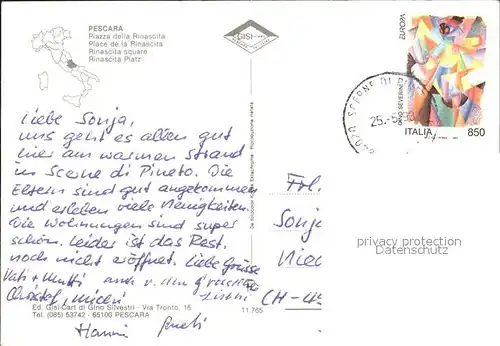 PESCARA
Piazza della Rinascita
Place de la Rinascita
Rinascita square
Rinascita Platz
GISI
EUROPA
ITALIA 850
25.
Liebe Sonja,
uns geht es allen gut
hier am warmen Strand
in Scerne di Pineto. Die
Eltern sind gut angekommen
und erleben viele Neuigkeiten.
Die Wohnungen sind super
schön. Leider ist das Rest.
noch nicht eröffnet. Liebe Grüsse
Vati + Mutti auch v. den
Christof,
Hanni Ruedi
Frl.
Sonj
Nie
CH-4
privacy protection
AnsichtskartenVersand.com
Ed. Gisi-Cart di Gino Silvestri - Via Tronto, 16
Tel. (085) 53742 - 65100 PESCARA
11.765